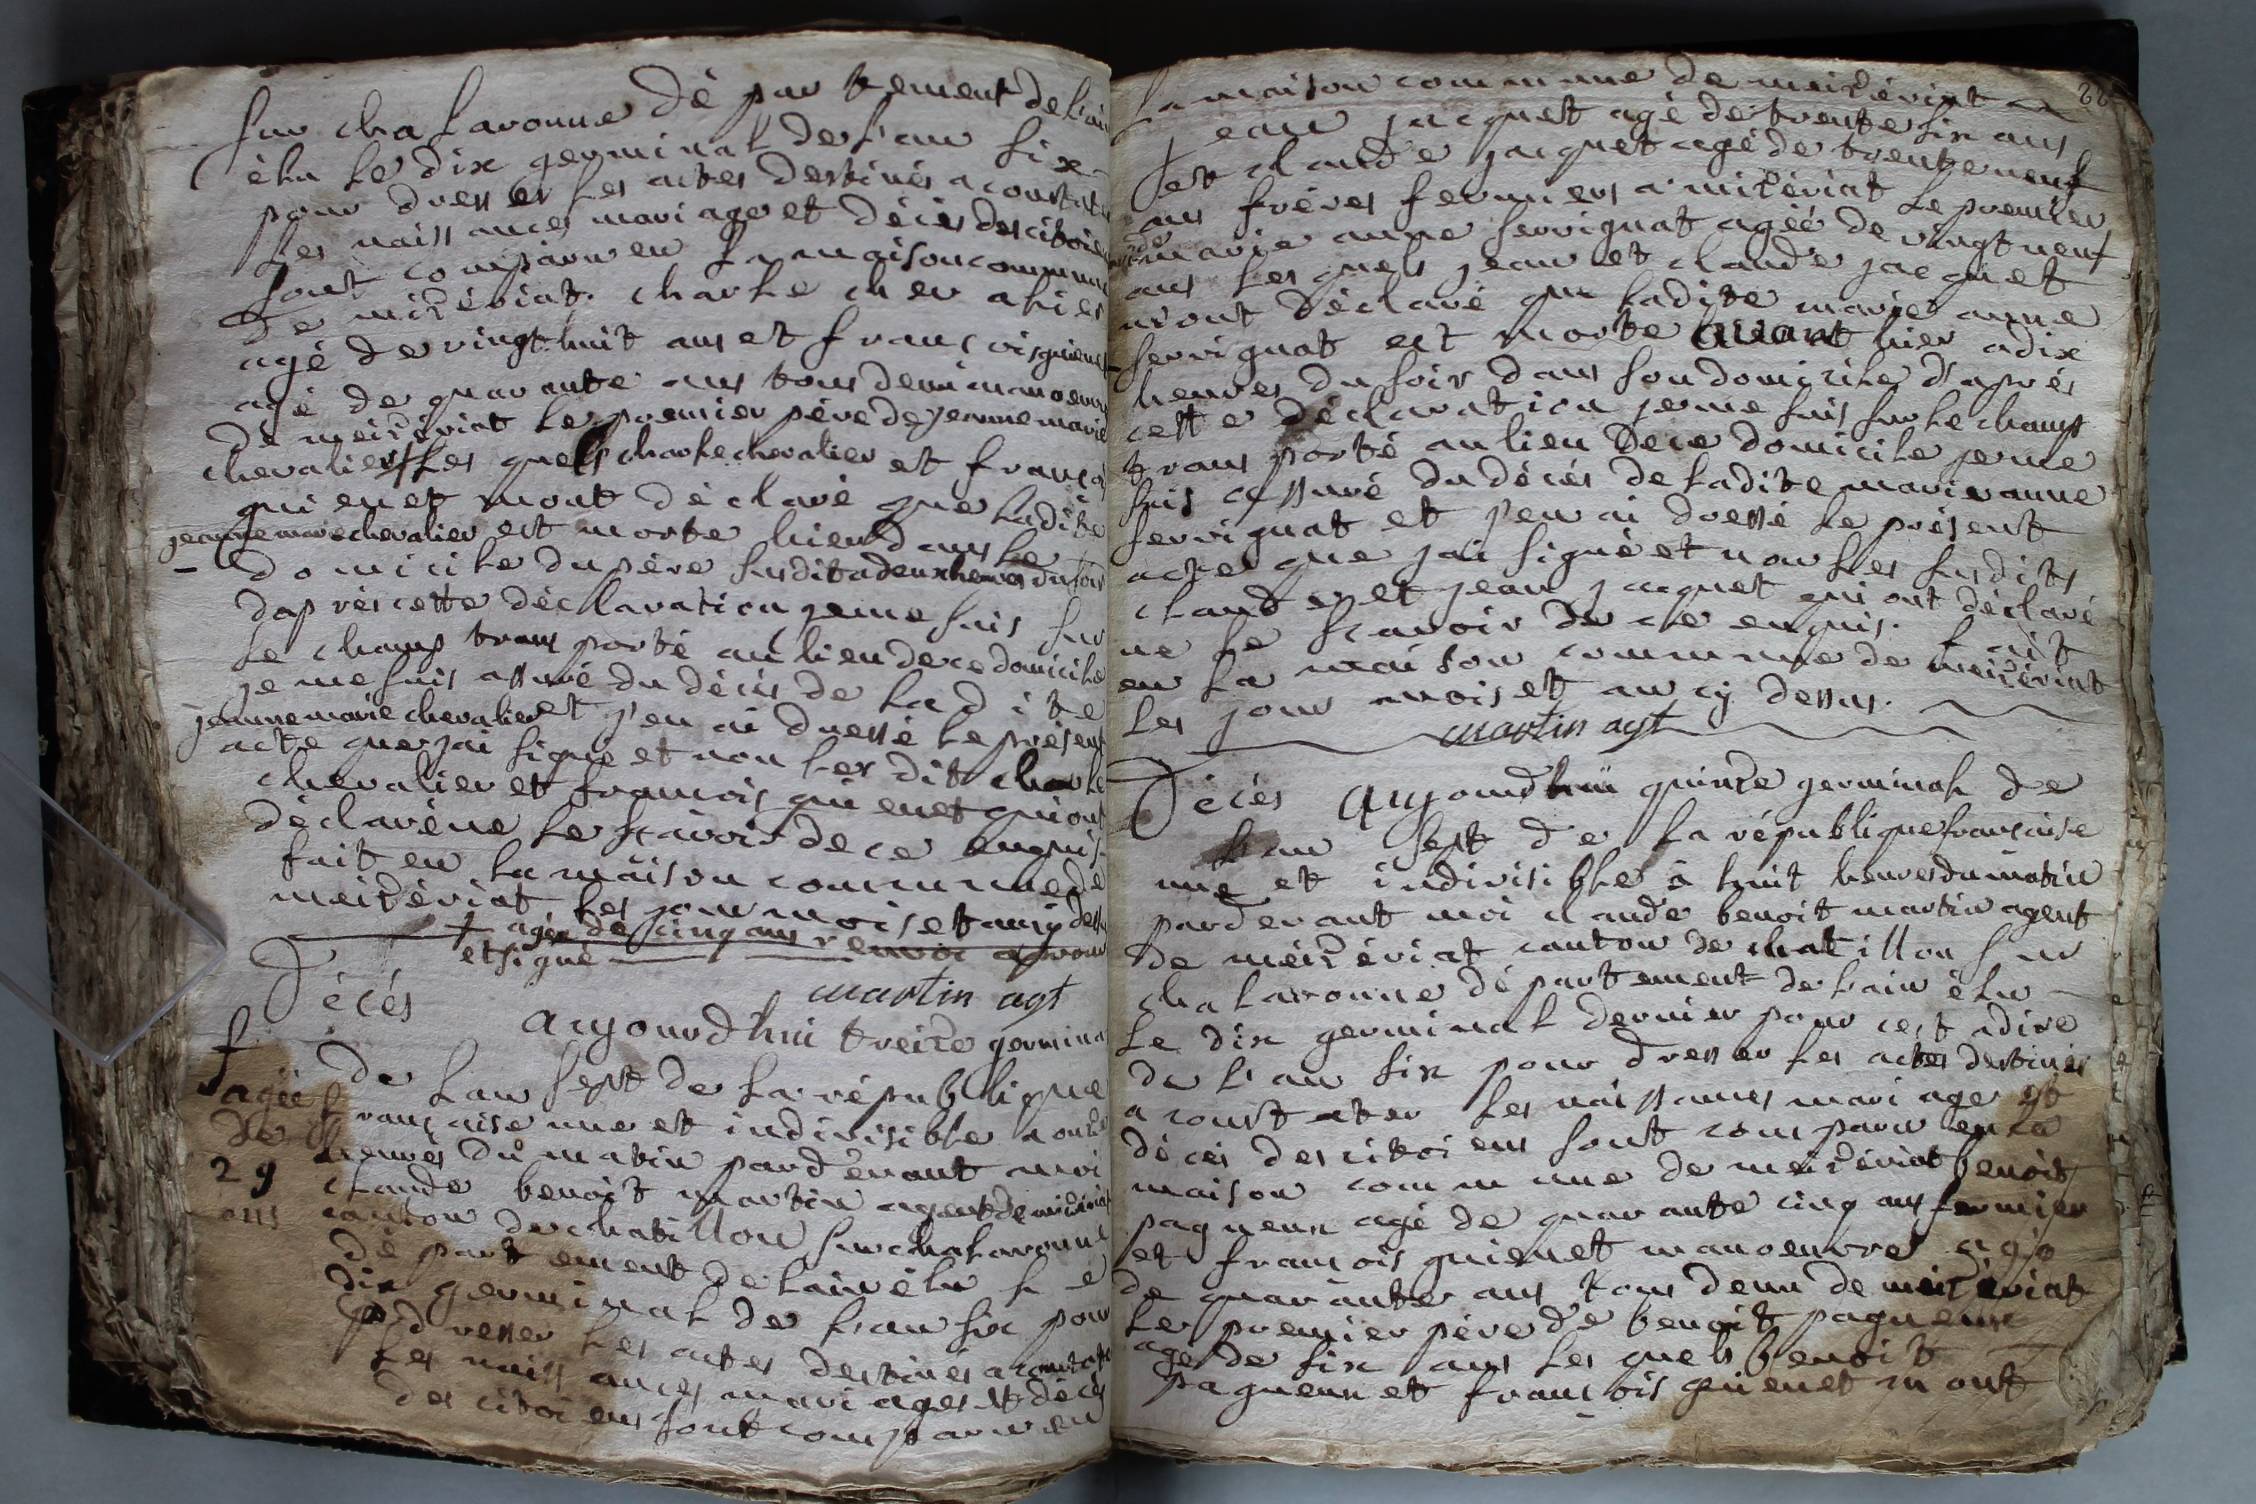 sur chalaronne dé par tement de lain
élu le dix germinal de l'an six
pour dresser les actes destinés a constater
les naissances mariage et décès des citoiens
sont comparu en la maison commune
de meizériat. charle chevalier
agé de vingt huit ans et francois guienet
agé de quarante ans tous deux manoeuvre
de meizériat le premier père de jeanne marie
chevalier + les quels charle chevalier et francois
guienet mont déclaré que ladite
jeanne marie chevalier est morte hier dans le
domicile du père susdit a deux heures du soir
daprès cette déclaration je me suis sur
le champ trans porté au lieu de ce domicile
je me suis assuré du décès de ladite
jeanne marie chevalier et j'en ai dressé le présent
acte que jai signé et non les dit charle
chevalier et francois guienet qui ont
déclaré ne le scavoir de ce enquis
fait en la maison commune de
meizériat les jour mois et an cy dessus
+ agée de cinq ans renvoi aprouvé
et signé
martin agt
Décès aujourd'hui treize germinal
de lan sept de la république
francaise une et indivisible a onze
heures du matin pardevant moi
claude benoit martin agent de meizériat
canton de chatillon sur chalaronne
dé part ement de lain élu le
dix germinal de l'an six pour
dresser les actes destinés a constater
les naissances mariages et décès
des citoiens sont comparu en
+
agée
de
29
ans
22
la maison commune de meizériat
jean jacquet agé de trente six ans
et claude jacquet agé de trente neuf
ans frères fermiers a mizériat le premier
mari de marie anne servignat agée de vingt neuf
ans les quels jean et claude jacquet
m'ont déclaré que ladite marie anne
servignat est morte avant hier a dix
heures du soir dans son domicile d'après
cette déclaration je me suis sur le champ
trans porté au lieu de ce domicile je me
suis assuré du décès de ladite marie anne
servignat et j'en ai dressé le présent
acte que jai signé et non les susdits
claude et jean jacquet qui ont déclaré
ne le scavoir de ce enquis. fait
en la maison commune de meizériat
les jour mois et an cy dessus.
martin agt
Décès aujourd'hui quinze germinal de
lan sept de la république francaise
une et indivisible à huit heures du matin
pardevant moi claude benoit martin agent
de meizériat canton de chatillon sur
chalaronne département de lain élu
le dix germinal dernier pour cest adire
de l'an six pour dresser les actes destinés
a const ater les naissances mariage et
décès des citoiens sont comparu en la
maison commune de meizériat benoit
pagneux agé de quarante cinq ans fermier
et francois guienet manoeuvre agé
de quarante ans tous deux de meizériat
le premier père de benoit pagneux
agé de six ans les quels benoit
pagneux et francois guienet m ont